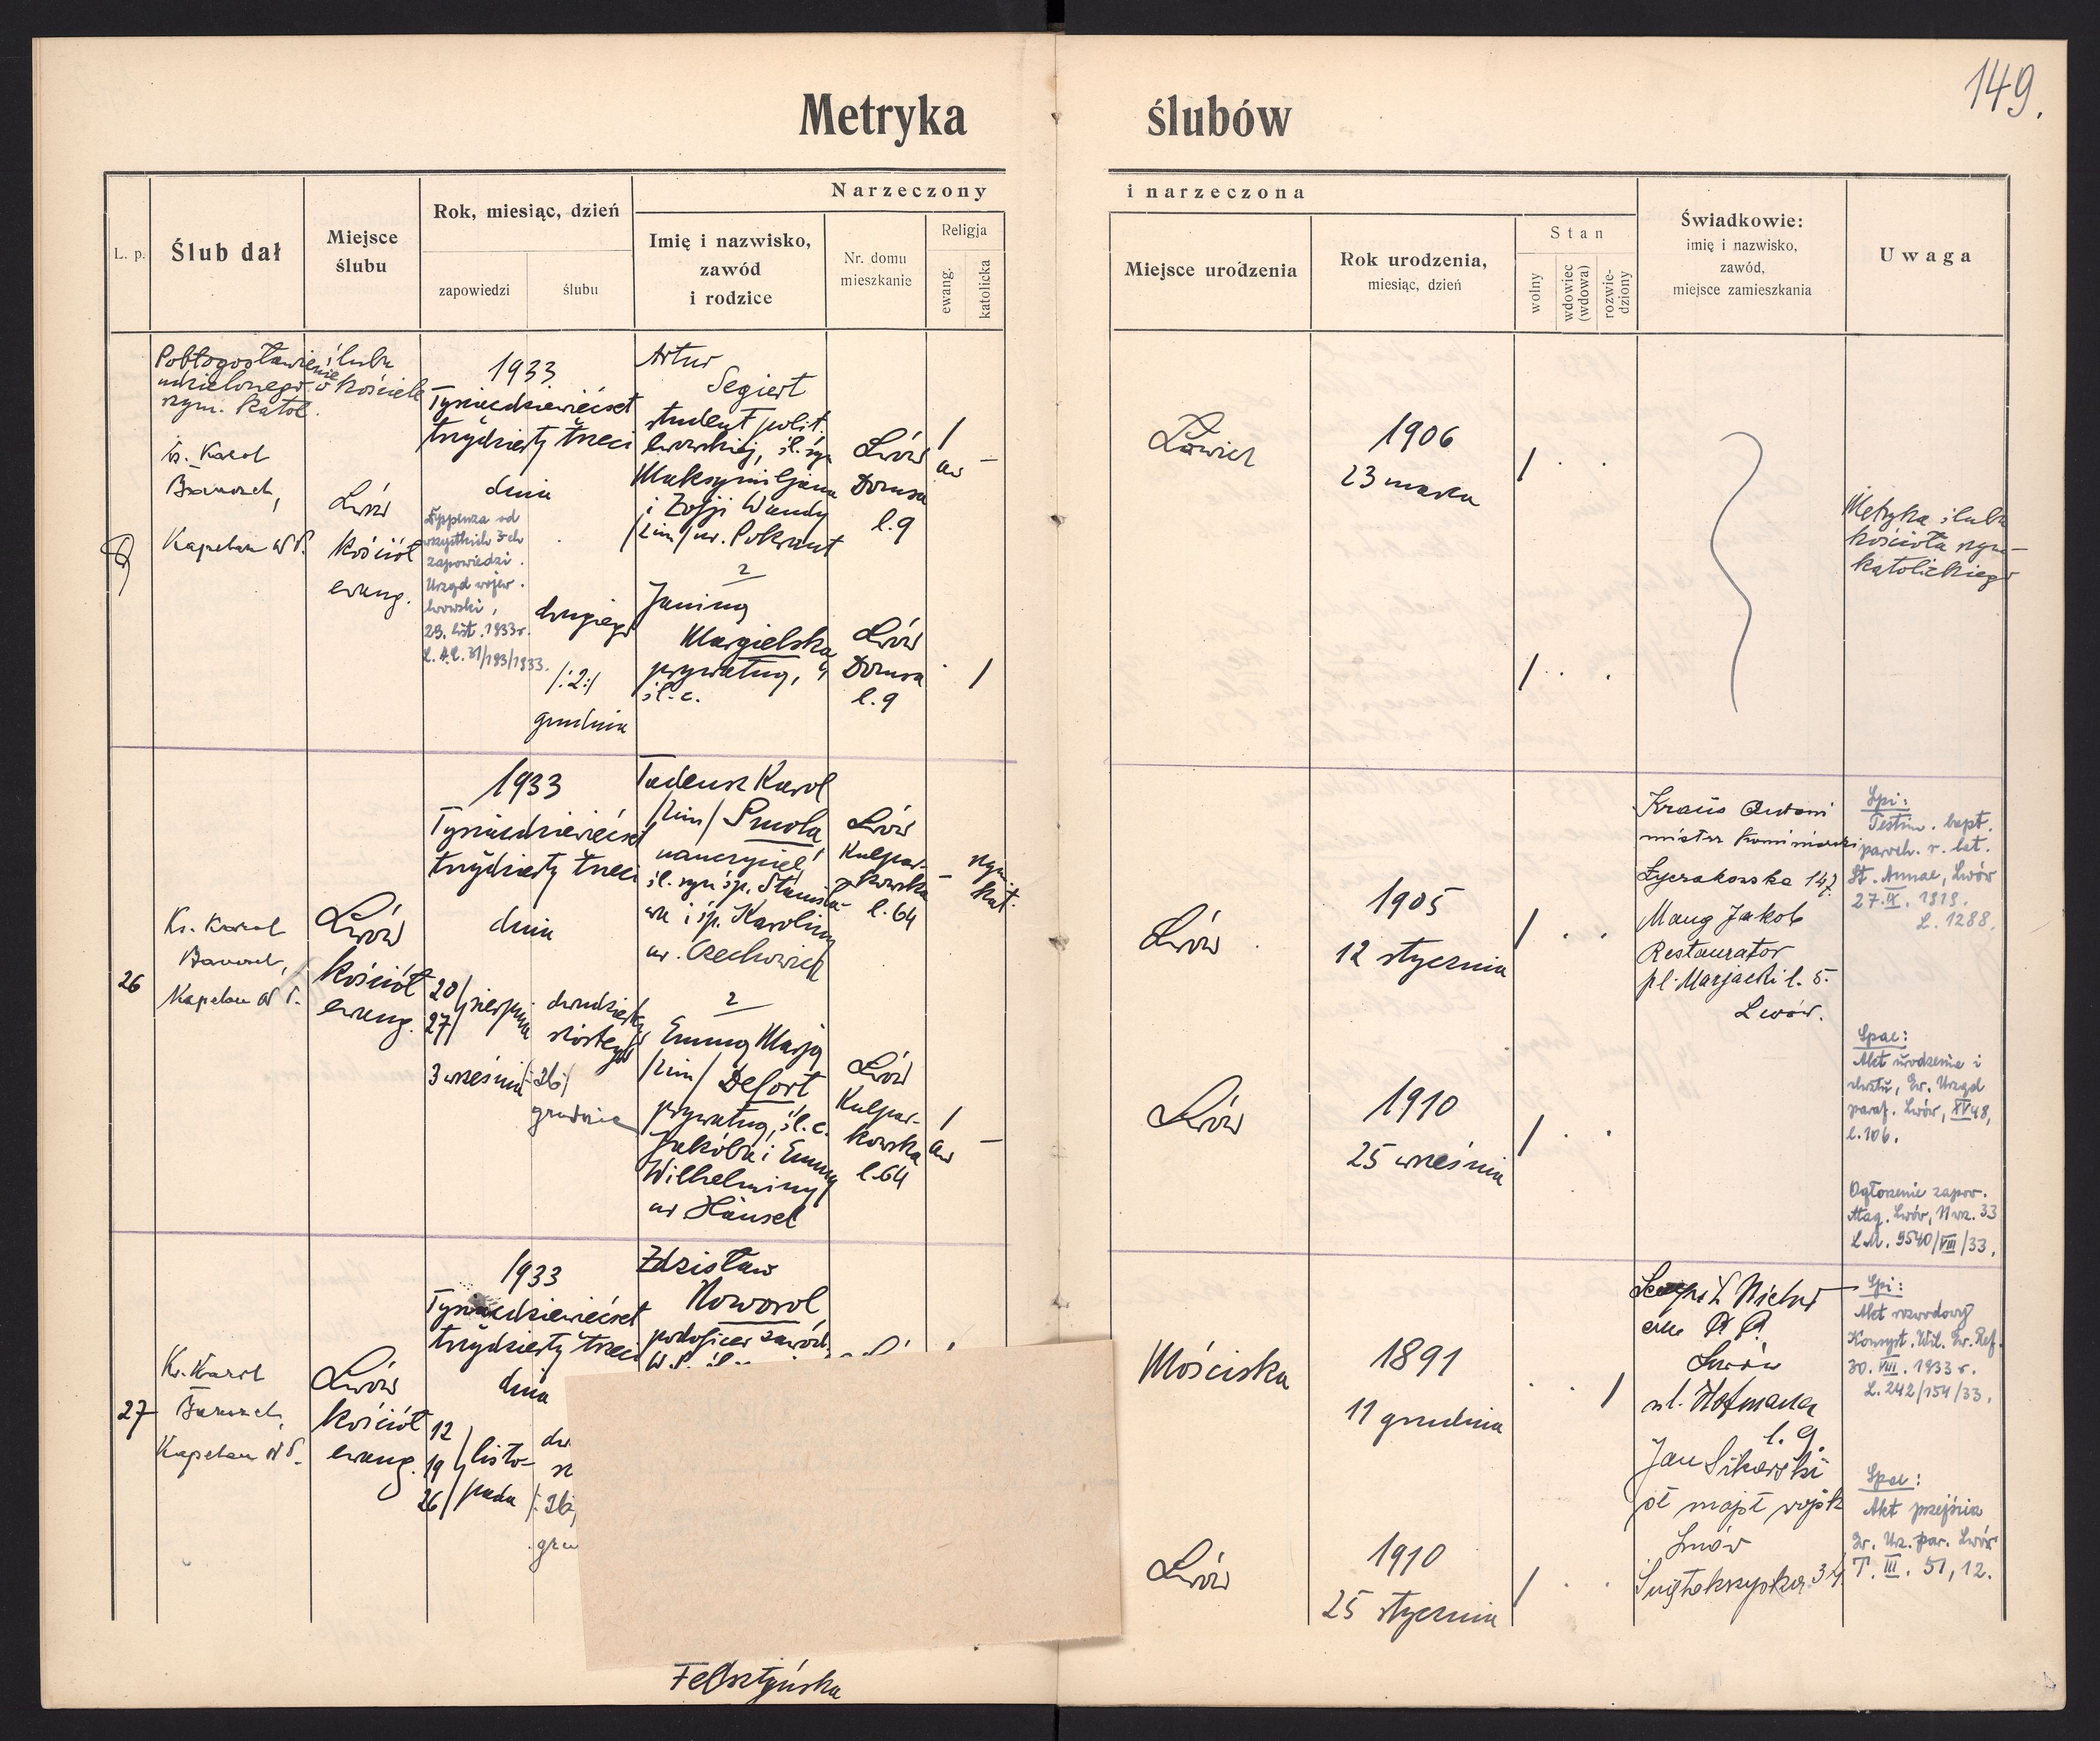 149.
Metryka ślubów
Narzeczony i narzeczona
L. p.
Ślub dał
Miejsce
ślubu
Rok, miesiąc, dzień
zapowiedzi
ślubu
Imię i nazwisko,
zawód
i rodzice
Nr. domu
mieszkanie
Religja
ewang.
katolicka
Miejsce urodzenia
Rok urodzenia,
miesiąc, dzień
Stan
wolny
wdowiec
(wdowa)
rozwie-
dziony
Świadkowie:
imię i nazwisko,
zawód,
miejsce zamieszkania
Uwaga
Pobłogosławienie ślubu
udzielonego w kościele
rzym. katol.
Ks. Karol
Banszel,
Kapelan W. P.
Lwów
kościół
ewang.
1933
Tysiącdziewięćset
trzydziesty trzeci
dnia
Dyspenza od
wszystkich 3-ch
zapowiedzi.
Urząd wojew.
lwowski,
29. list. 1933 r.
drugiego
/:2:/
grudnia
Artur
Segiert
student polit.
lwowskiej, śl. syn
Maksymiljana
i Zofji Wandy
/2im/ ur. Pokrant
z
Janiną
Margielską
prywatną,
śl. c.
Lwów
Dornsa
l. 9
Lwów
Dornsa
l. 9
/
aw
–
/
Łowicz
1906
23 marca
/
/
Metryka ślubu
kościoła rzym-
katolickiego
26
Ks. Karol
Banszel,
Kapelan W. P.
Lwów
kościół
ewang.
1933
Tysiącdziewięćset
trzydziesty trzeci
dnia
20/
27/ sierpnia
3 września
dwudziestego
szóstego
/26/
grudnia
Tadeusz Karol
/2im/ Smola
nauczyciel
śl. syn śp. Stanisła-
wa i śp. Karoliny
ur. Czechowicz
z
Emmą Marją
/2im/ Defort
prywatną, śl. c.
Jakóba i Emmy
Wilhelminy
ur Hänsel
Lwów
Kulpar-
kowska
l. 64
Lwów
Kulpar-
kowska
l. 64
–
rzym.
kat.
/
aw
–
Lwów
1905
12 stycznia
/
Lwów
1910
25 września
/
Kraus Antoni
mistrz kominiarski
Łyczakowska 147.
Maug Jakob
Restaurator
pl. Marjacki l. 5.
Lwów.
Spi:
Testim. bapt.
paroch. r. lat.
St. Annae, Lwów
27. IX. 1919.
L. 1288.
Spae:
Akt urodzenia i
chrztu, Ew. Urząd
paraf. Lwów, XV 48,
l. 106.
Ogłoszenie zapow.
Mag. Lwów, Wrz. 33
L. M. 9540/VIII/33.
27
Ks. Karol
Banszel,
Kapelan W. P.
Lwów
kościół
ewang.
1933
Tysiącdziewięćset
trzydziesty trzeci
dnia
12
19 listo-
26/ pada
dw
sz
/: 26
gru
Zdzisław
Noworol
podoficer zawod.
W. P.
Felsztyńska
Mościska
1891
11 grudnia
/
Lwów
1910
25 stycznia
/
Lwów
ul. Hofmana
l. 9.
Jan Sikorski
Lwów
Spi:
Akt rozwodowy
Konsyst. Wil. Ew. Ref.
30. VIII. 1933 r.
L. 242/154/33.
Spae:
Akt przejścia
Ew. Urz. par. Lwów
T. III. 51, 12.